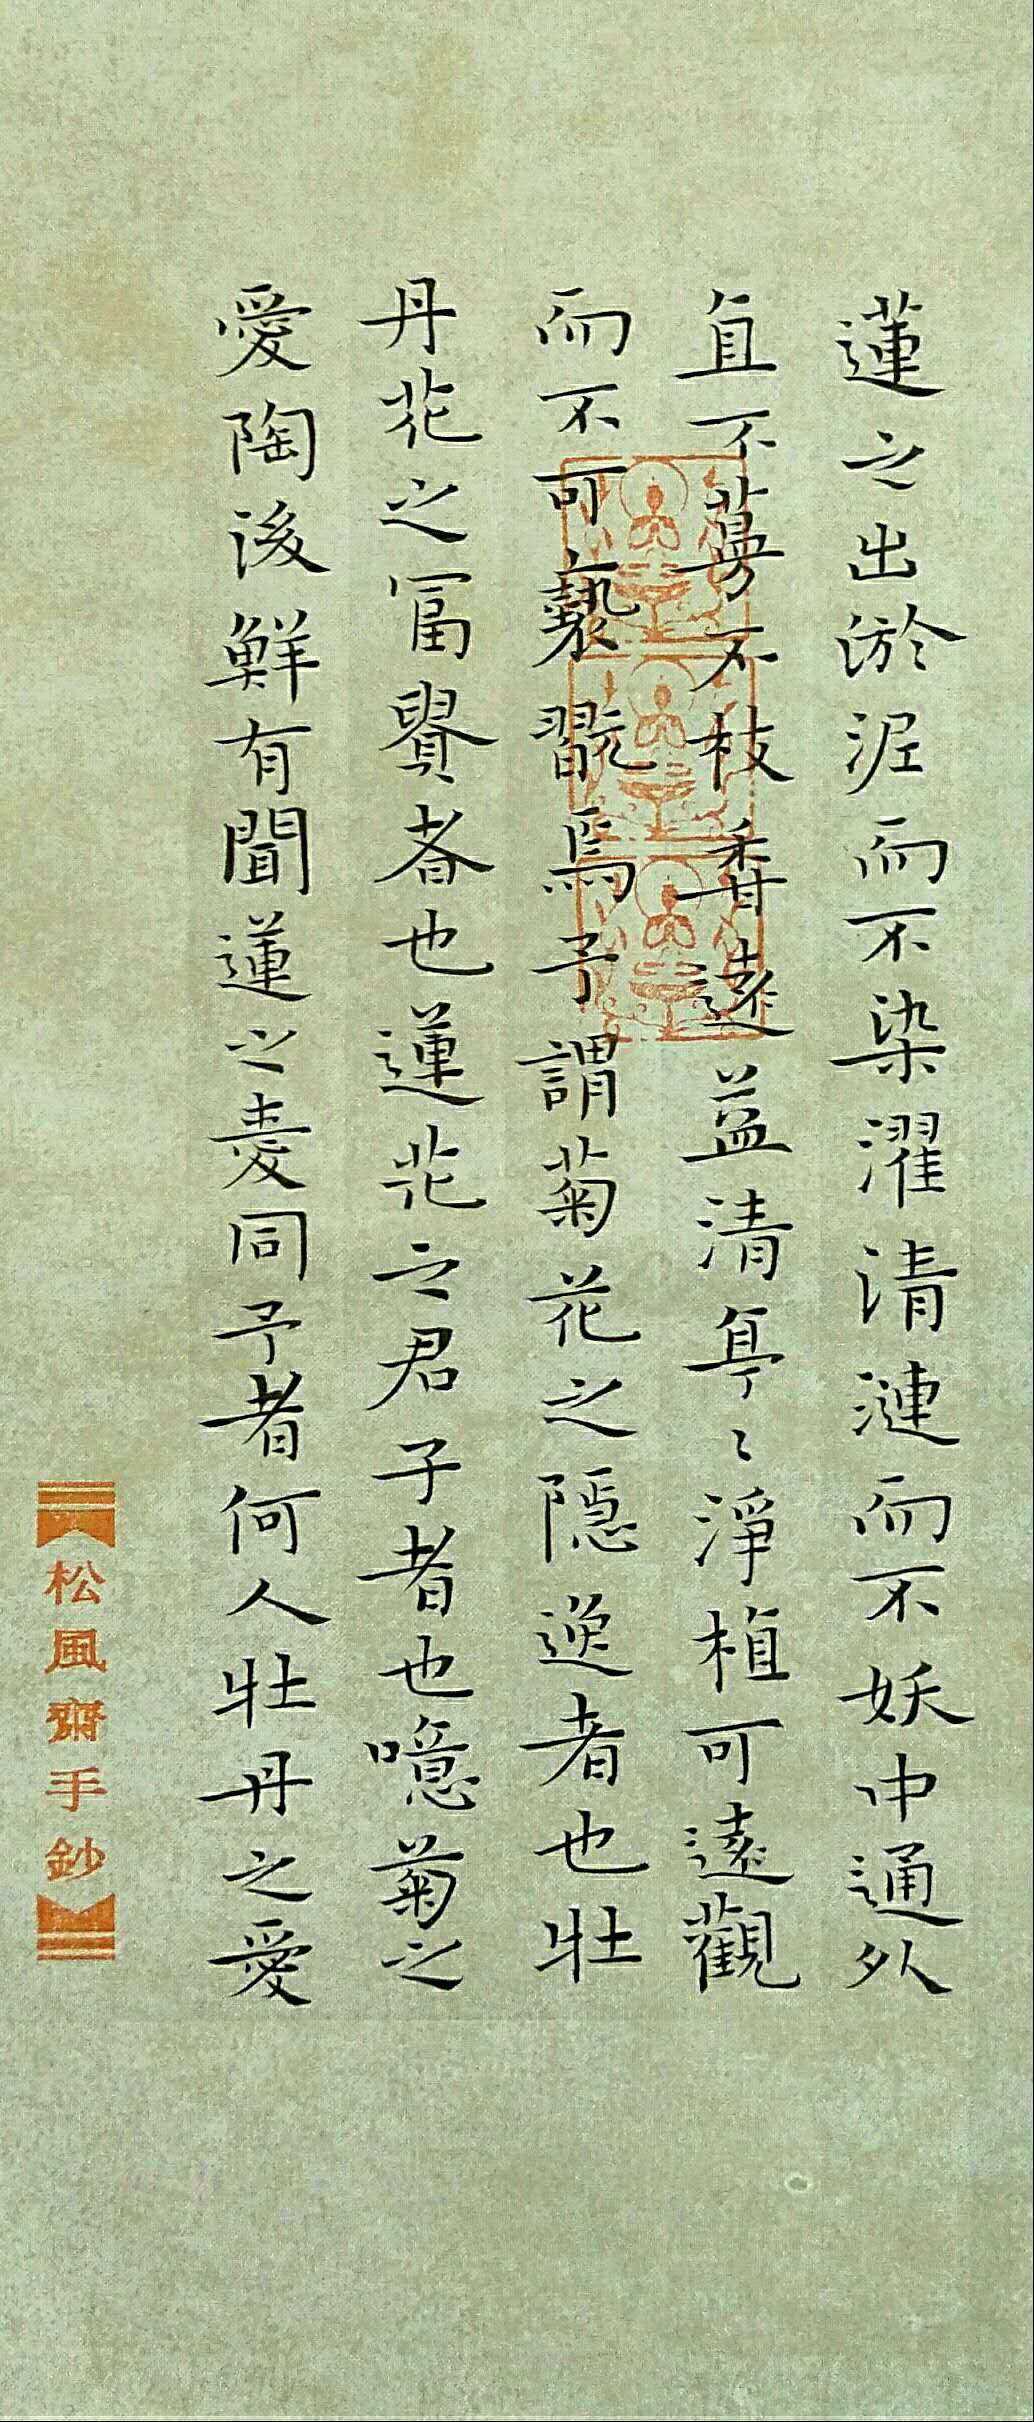 蓮之出淤泥而不染濯清漣而不妖中通外
直不蔓不枝香遠益清亭〻淨植可遠觀
而不可褻翫焉予謂菊花之隱逸者也牡
丹花之富貴者也蓮花之君子者也噫菊之
愛陶後鮮有聞蓮之愛同予者何人牡丹之愛
松風齋手鈔